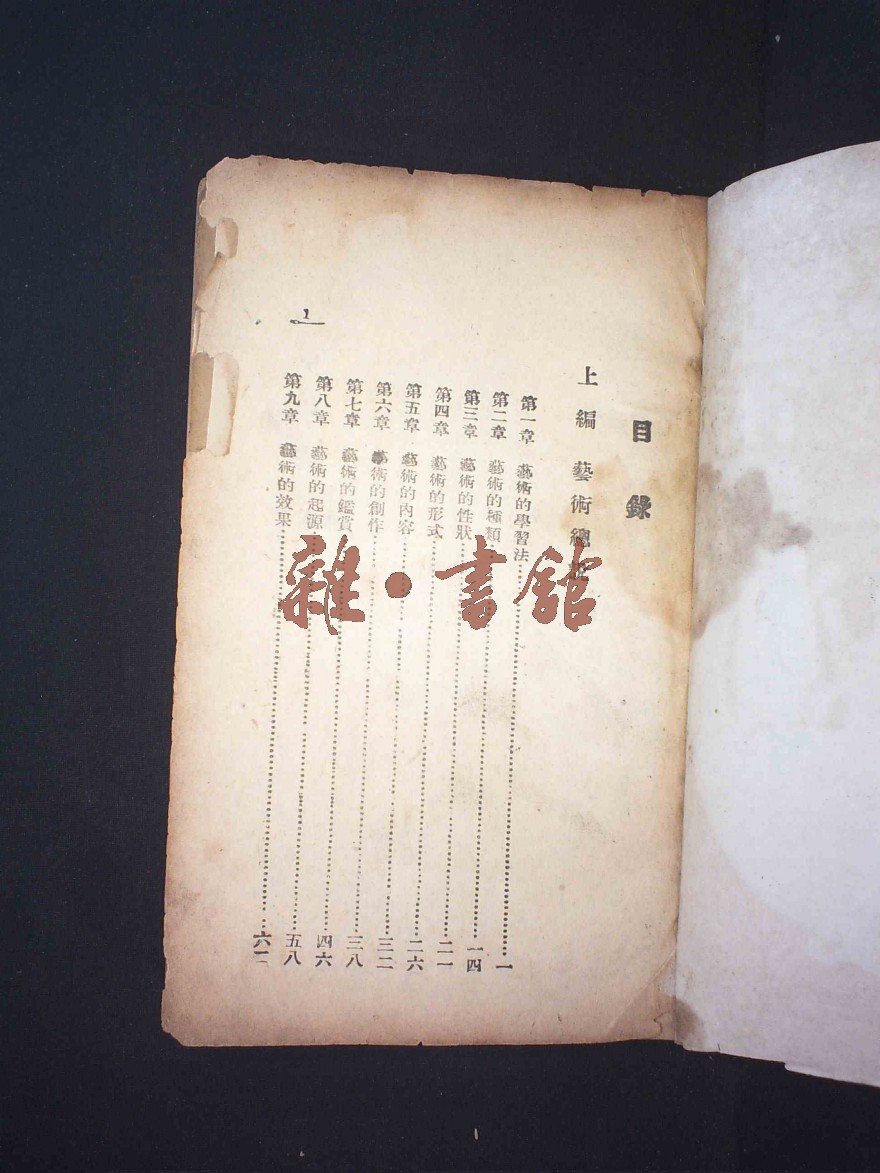 目錄
上編 藝術總
第一章 藝術的學習法……一
第二章 藝術的種類……一四
第三章 藝術的性狀……二一
第四章 藝術的形式……二六
第五章 藝術的內容……三二
第六章 藝術的創作……三八
第七章 藝術的鑑賞……四六
第八章 藝術的起源……五八
第九章 藝術的效果……
1
雜·書館